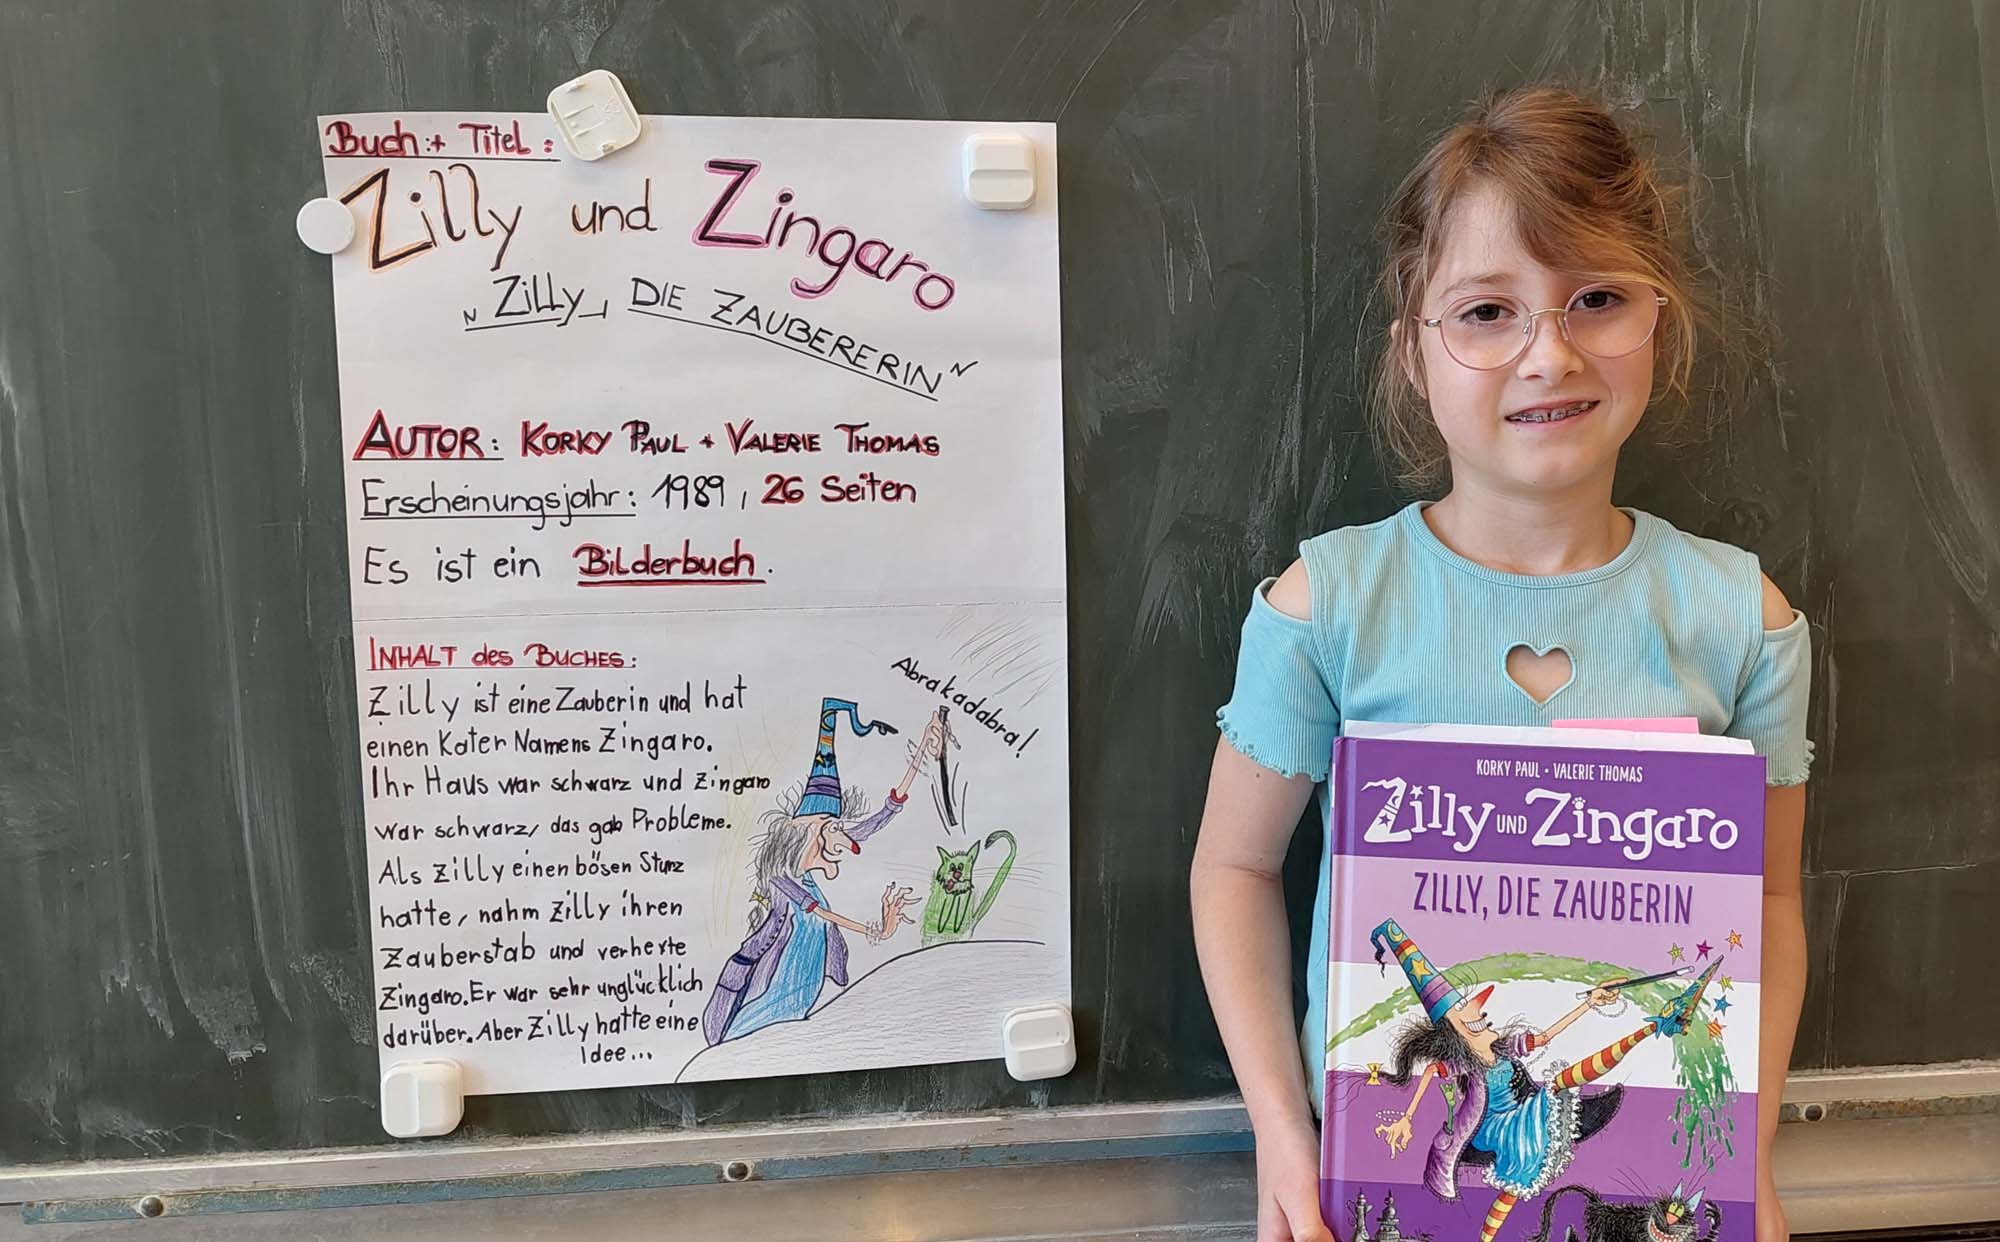 Buch:+ Titel:
Zilly und Zingaro
"Zilly, DIE ZAUBERERIN"
AUTOR: KORKY PAUL + VALERIE THOMAS
Erscheinungsjahr: 1989, 26 Seiten
Es ist ein Bilderbuch.
INHALT des BUCHES:
Zilly ist eine Zauberin und hat
einen Kater Namens Zingaro.
Ihr Haus war schwarz und Zingaro
war schwarz, das gab Probleme.
Als Zilly einen bösen Sturz
hatte, nahm Zilly ihren
Zauberstab und verhexte
Zingaro. Er war sehr unglücklich
darüber. Aber Zilly hatte eine
Idee...
Abrakadabra!
KORKY PAUL • VALERIE THOMAS
Zilly UND Zingaro
ZILLY, DIE ZAUBERIN